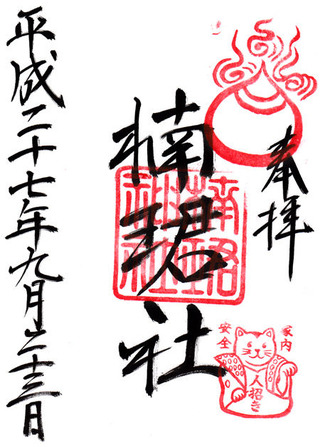 奉拝
楠珺社
平成二十七年九月二十三日
家内
安全
人招き